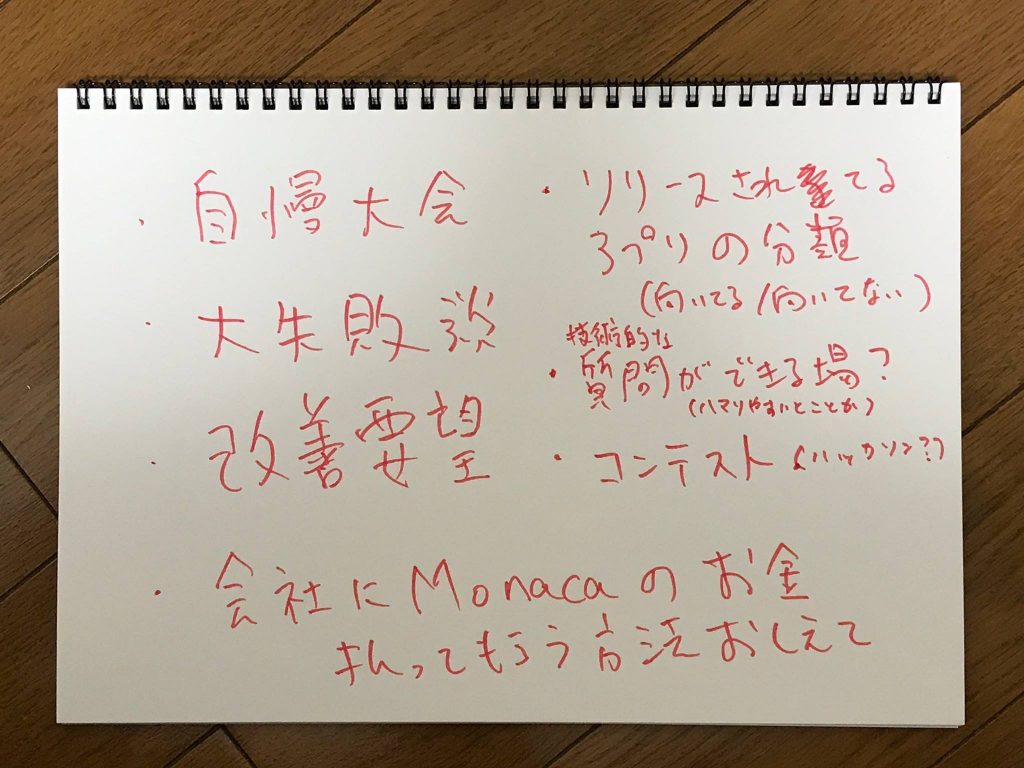 ・自慢大会
・大失敗談
・改善要望
・会社にMonacaのお金
払ってもらう方法おしえて
・リリースされてる
アプリの分類
(向いてる/向いてない)
技術的な
・質問ができる場?
(ハマりやすいとことか)
・コンテスト(ハッカソン??)